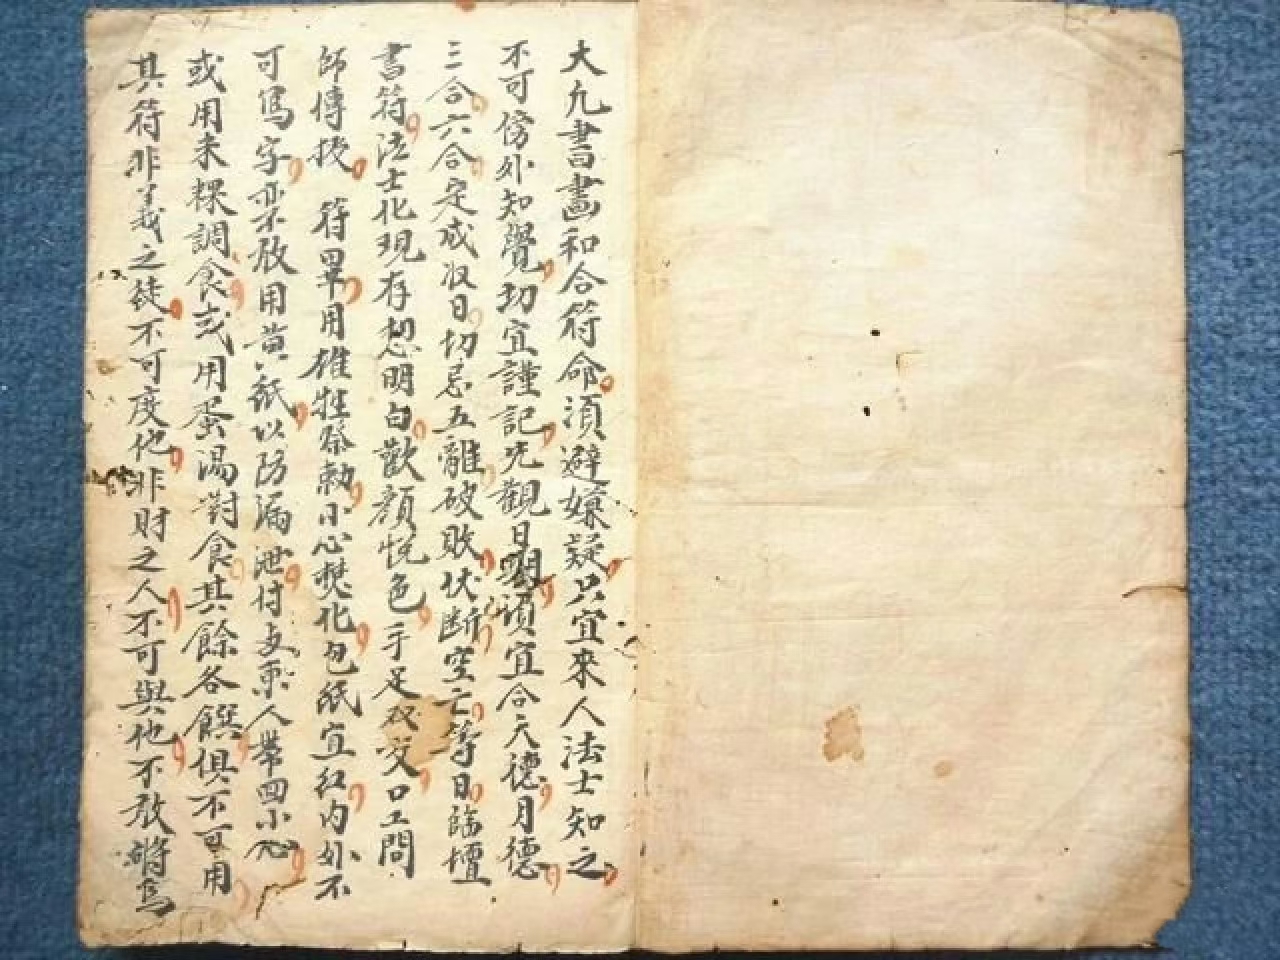 大凢書畫和合符命須避嫌疑只宜來人法士知之
不可傍外知覺切宜謹記先觀日期須宜合天德月德
三合六合定成收日切忌五離破敗伏断空亡等日臨壇
書符法士化現存想明白歡顔悦色手足双交口工問
師傳授 符畢用雄牲祭勅小心焚化包紙宜紅内外不
可寫字並不敢用黄紙以防漏泄付与來人帶回小心
或用米粿調食或用蛋湯對食其餘各饌俱不可用
其符非義之徒不可度他非財之人不可與他不敢